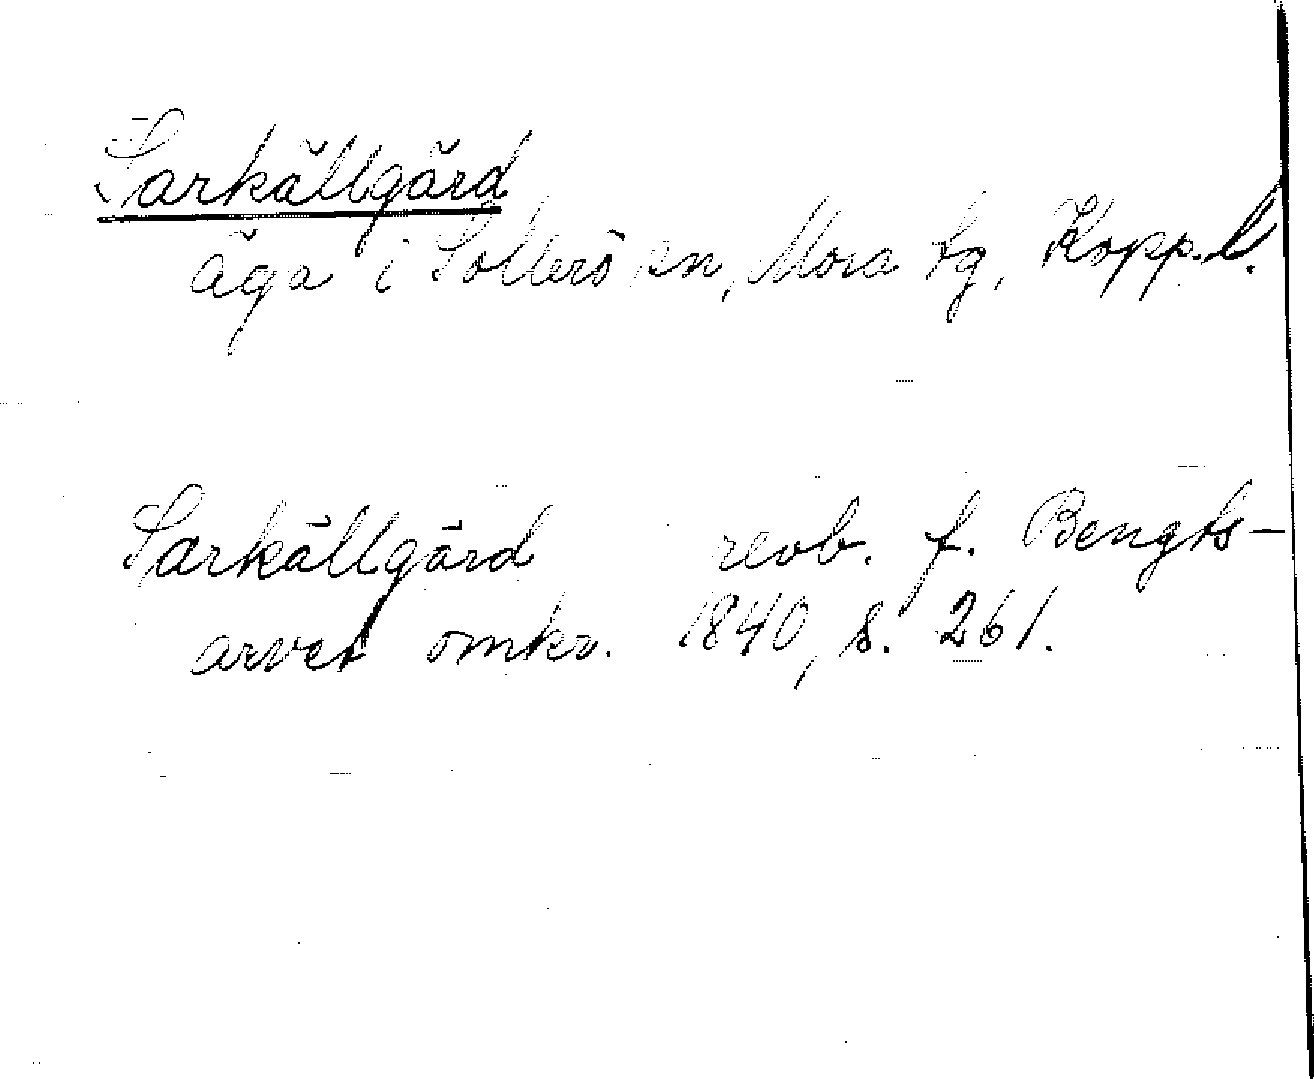 Sarkällgärd
äga i Sollerö sn, Mora tg, Kopp. l.
Sarkällgärd revb. f. Bengts-
arvet omkr. 1840, s. 261.